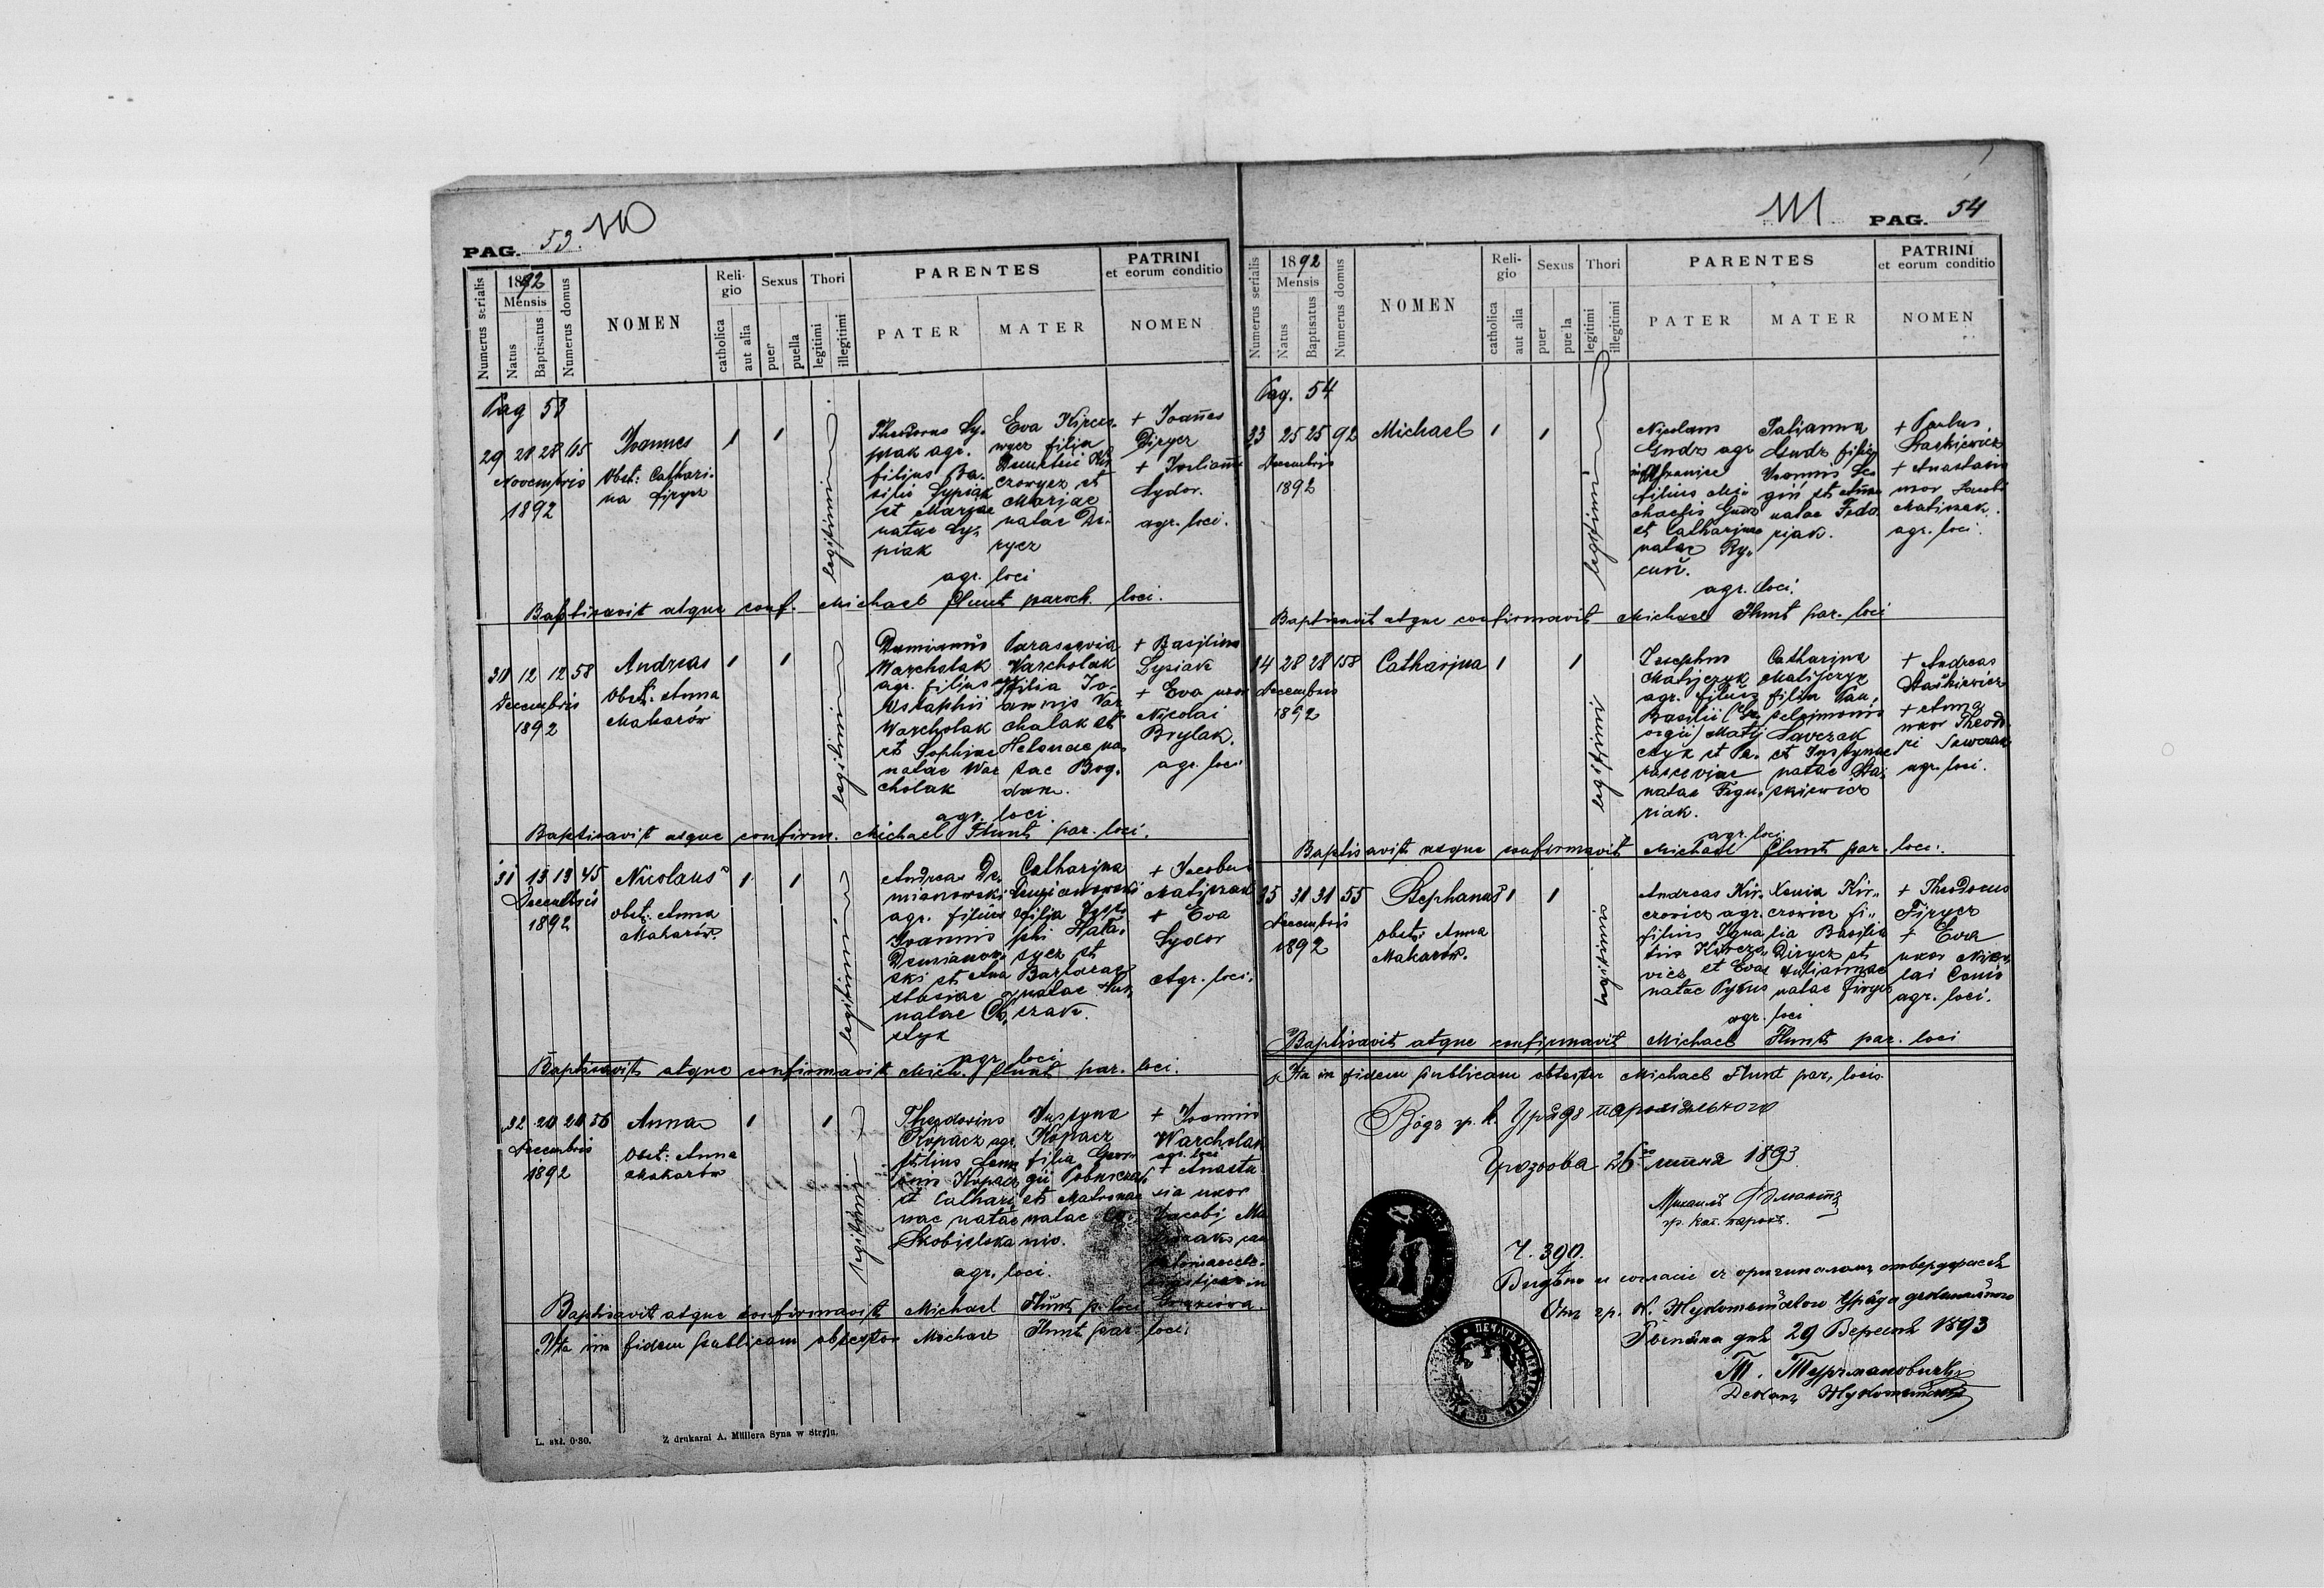 PAG. 53. 110
Numerus serialis
1892
Mensis
Natus
Baptisatus
Numerus domus
NOMEN
Reli-
gio
catholica
aut alia
Sexus
puer
puella
Thori
legitimi
illegitimi
PARENTES
PATER
MATER
PATRINI
et eorum conditio
NOMEN
Pag 53
29 28 28 65
Novembris
1892
Joannes
Obst: Cathari-
na Firycz
1 1
legitimi
Theodorus Ly-
piak agr.
filius Ba-
silii Lypiak
et Marjae
natae Ly-
piak
Eva Kircz-
wycz filia
Demetrii Kir
czowycz et
Marjae
natae Di-
rycz
agr. loci
+ Joañes
Dirycz
+ Juliann
Sydor.
agr. loci.
Baptisavit atque conf. Michael Flunt paroch. loci.
30 12 12 58
Decembris
1892
Andreas
Obst: Anna
Makarów
1 1
legitimi
Damianus
Warcholak
agr. filius
Ustaphii
Warcholak
et Sophiae
natae War
cholak
Parascevia
Warcholak
filia Jo-
annis War
cholak et
Helenae na
tae Bog-
dan.
agr. loci.
+ Basilius
Lysiak
+ Eva uxor
Nicolai
Brylak.
agr. loci.
Baptisavit atque confirm. Michael Flunt par. loci.
31 13 13 45
Decembris
1892
Nicolaus
Obst: Anna
Makarów.
1 1
legitimi
Andreas De-
mianowski
agr. filius
Joannis
Demianow-
ski et Ana
stasiae
natae
Catharina
Demianowski
filia
phi Hata-
sycz et
Barbarae
natae
czak.
agr. loci
+ Jacobus
Matijczak
+ Eva
Sydor
Agr. loci.
Baptisavit atque confirmavit Mich. Flunt par. loci.
32 20 20 56
Decembris
1892
Anna
Obst: Anna
Makarów
1 1
legitimi
Theodorus
Kopacz agr.
filius
Kopacz
et Cathari
nae natae
Skobielska
Justyna
Kopacz
filia Geor-
gii
et Matronae
natae
agr. loci.
+ Joannes
Warcholak
agr. loci
+ Anasta
sia uxor
Jacobi
Baptisavit atque confirmavit Michael Flunt p. loci
Ita in fidem publicam obtestor Michael Flunt par. loci.
L. skł. 0·30.
Z drukarni A. Müllera Syna w Stryju.
111 PAG. 54
Numerus serialis
1892
Mensis
Natus
Baptisatus
Numerus domus
NOMEN
Reli-
gio
catholica
aut alia
Sexus
puer
puella
Thori
legitimi
illegitimi
PARENTES
PATER
MATER
PATRINI
et eorum conditio
NOMEN
Pag. 54
33 25 25 92
Decembris
1892
Michael
1 1
legitimi
Nicolaus
Gudz agr
filius Mi-
chaelis Gudz
et Catharinae
natae Ry-
Julianna
Gudz filia
Joannis Se-
giń et Annae
natae Fedo-
rjak.
agr. loci.
+ Paulus
Staskiewicz
+ Anastasia
uxor Jacobi
Matijczak.
agr. loci.
Baptisavit atque confirmavit Michael Flunt par. loci
34 28 28 158
Decembris
1892
Catharina
1 1
legitimi
Josephus
Matijczyk
agr. filius
Basilii (Ge-
orgii) Matij
czyk et Pa-
rasceviae
natae Fegu-
riak.
Catharina
Matijczyk
filia Pan-
teleimonis
Sawczak
et Justynae
natae Sta-
skiewicz
agr. loci.
+ Andreas
Staśkiewicz
+ Anna
uxor Theodo
ri Sawczak
agr. loci.
Baptisavit atque confirmavit Michael Flunt par. loci.
35 31 31 55
Decembris
1892
Stephanus
Obst: Anna
Makarów.
1 1
legitimis
Andreas Kir-
czowicz agr.
filius Igna
tii Kircza-
wicz et Evae
natae Pyrus
Xenia Kir-
czowicz fi-
lia Basilii
Dirycz et
Juliannae
natae Firycz
agr. loci
+ Theodorus
Firycz
+ Eva
uxor Nico-
lai
agr. loci.
Baptisavit atque confirmavit Michael Flunt par. loci
Ita in fidem publicam obtestor Michael Flunt par. loci.
Вôдъ гр. к. Уряда парохіяльного
Грозьова 26го липня 1893.
Михаилъ Флюнтъ
гр. кат. парохъ.
Ч. 390.
Видѣно и согласіе съ оригиналомъ
Отъ гр. к. Жукотинского Уряда деканального
дня 29 Вересня 1893
Т. Турчмановичъ
Деканъ Жукотинскій